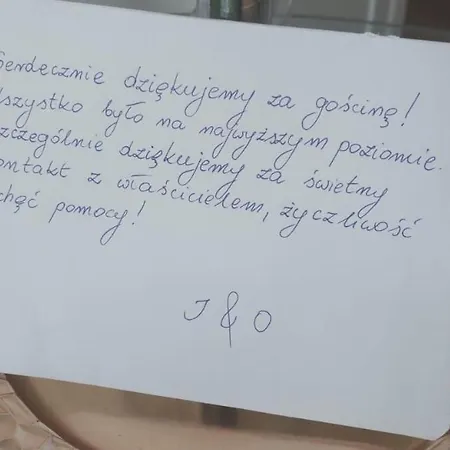 Serdecznie dziękujemy za gościnę!
Wszystko było na najwyższym poziomie.
Szczególnie dziękujemy za świetny
kontakt z właścicielem, życzliwość
chęć pomocy!
J & O